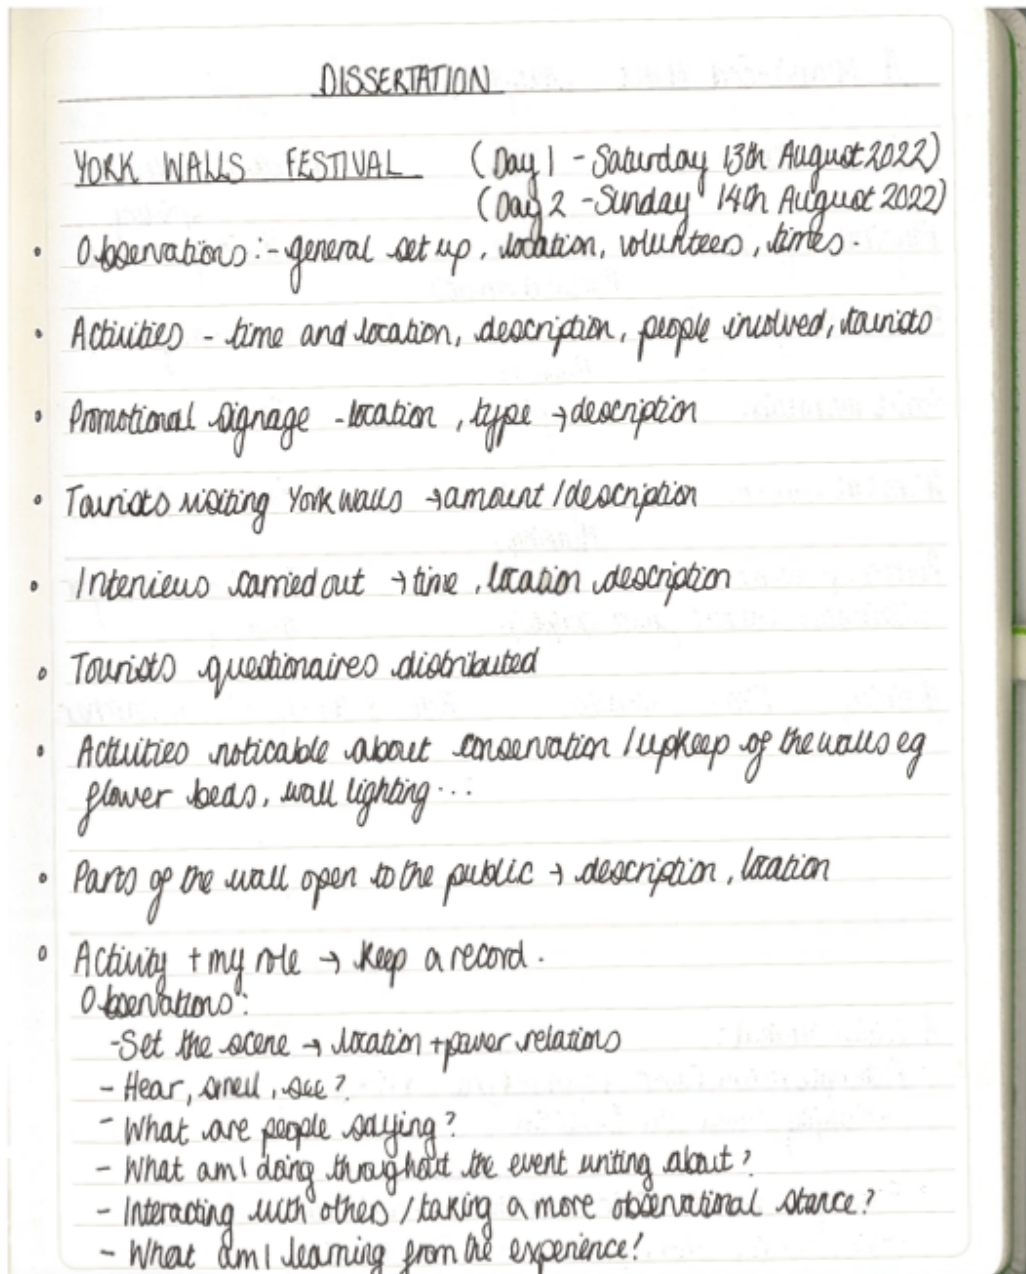 DISSERTATION
YORK WALLS FESTIVAL (Day 1 - Saturday 13th August 2022)
(Day 2 - Sunday 14th August 2022)
• Observations:- general set up, location, volunteers, times.
• Activities - time and location, description, people involved, tourists
• Promotional Signage - location, type → description
• Tourists visiting York walls → amount / description
• Interviews carried out → time, location, description
• Tourists questionaires distributed
• Activities noticable about conservation / upkeep of the walls eg
flower beds, wall lighting...
• Parts of the wall open to the public → description, location
• Activity + my role → keep a record.
Observations:
- Set the scene → location + power relations
- Hear, smell, see?
- What are people saying?
- What am I doing throughout the event writing about?
- Interacting with others / taking a more observational stance?
- What am I learning from the experience?